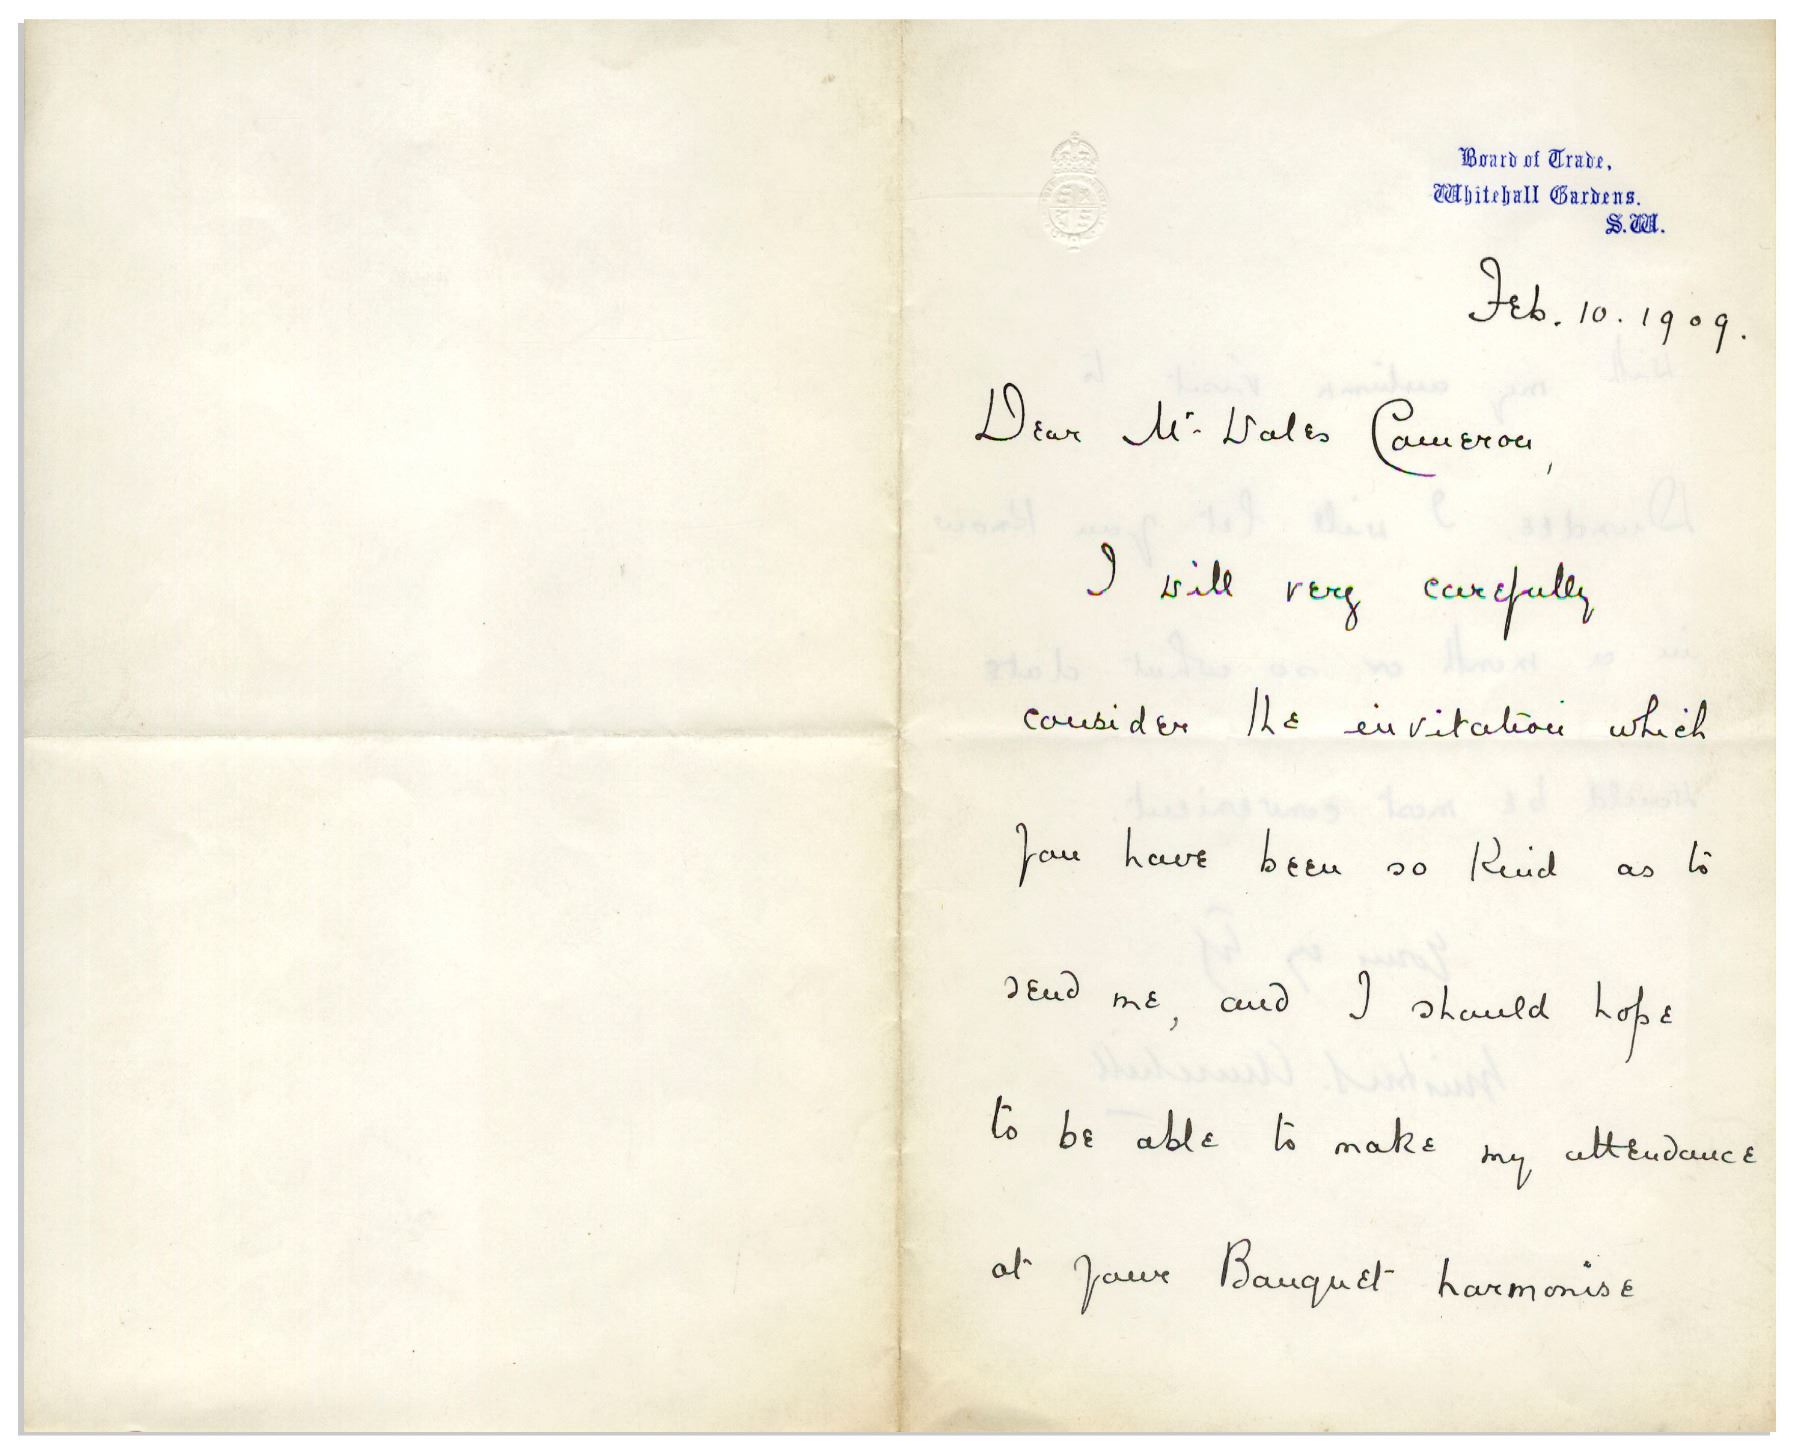 Board of Trade,
Whitehall Gardens.
S.W.
Feb. 10. 1909.
Dear Mr. Wales Cameron,
I will very carefully
consider the invitation which
you have been so kind as to
send me, and I should hope
to be able to make my attendance
at your Banquet harmonise